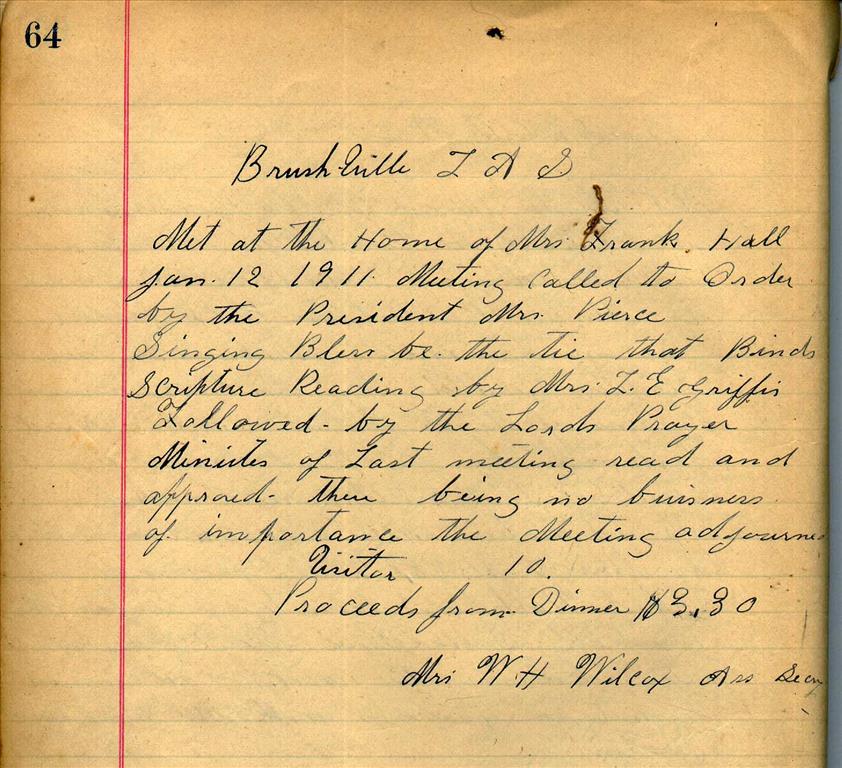 64
Brushville L A S
Met at the Home of Mrs Frank Hall
Jan. 12 1911 Meeting Called to Order
by the President Mrs. Pierce
Singing Bless be. the tie that Binds
Scripture Reading by Mrs. L. E Griffis
Followed - by the Lords Prayer
Minutes of Last meeting read and
approed - there being no buisness
of importance the Meeting adjourned
Visitor 10.
Proceeds from Dinner $3.30
Mrs W H Wilcox Ass Secy